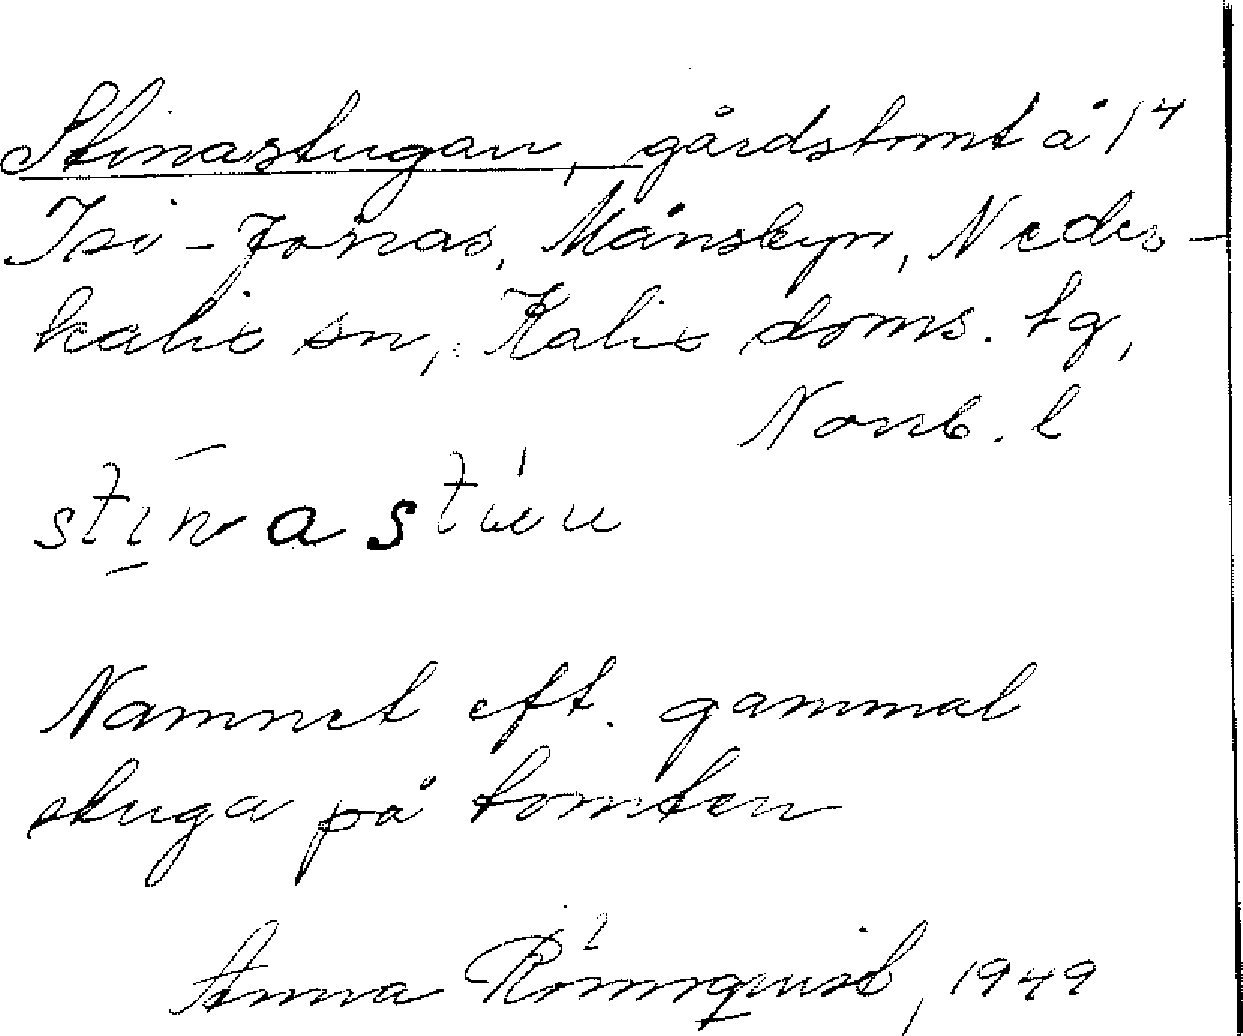 Stinastugan, gårdstomt å 1⁴
Isi-Jonas, Månsbyn, Neder-
kalix sn, Kalix doms. tg,
Norrb. l
stinastuu
Namnet eft. gammal
stuga på tomten
Anna Römqvist, 1949